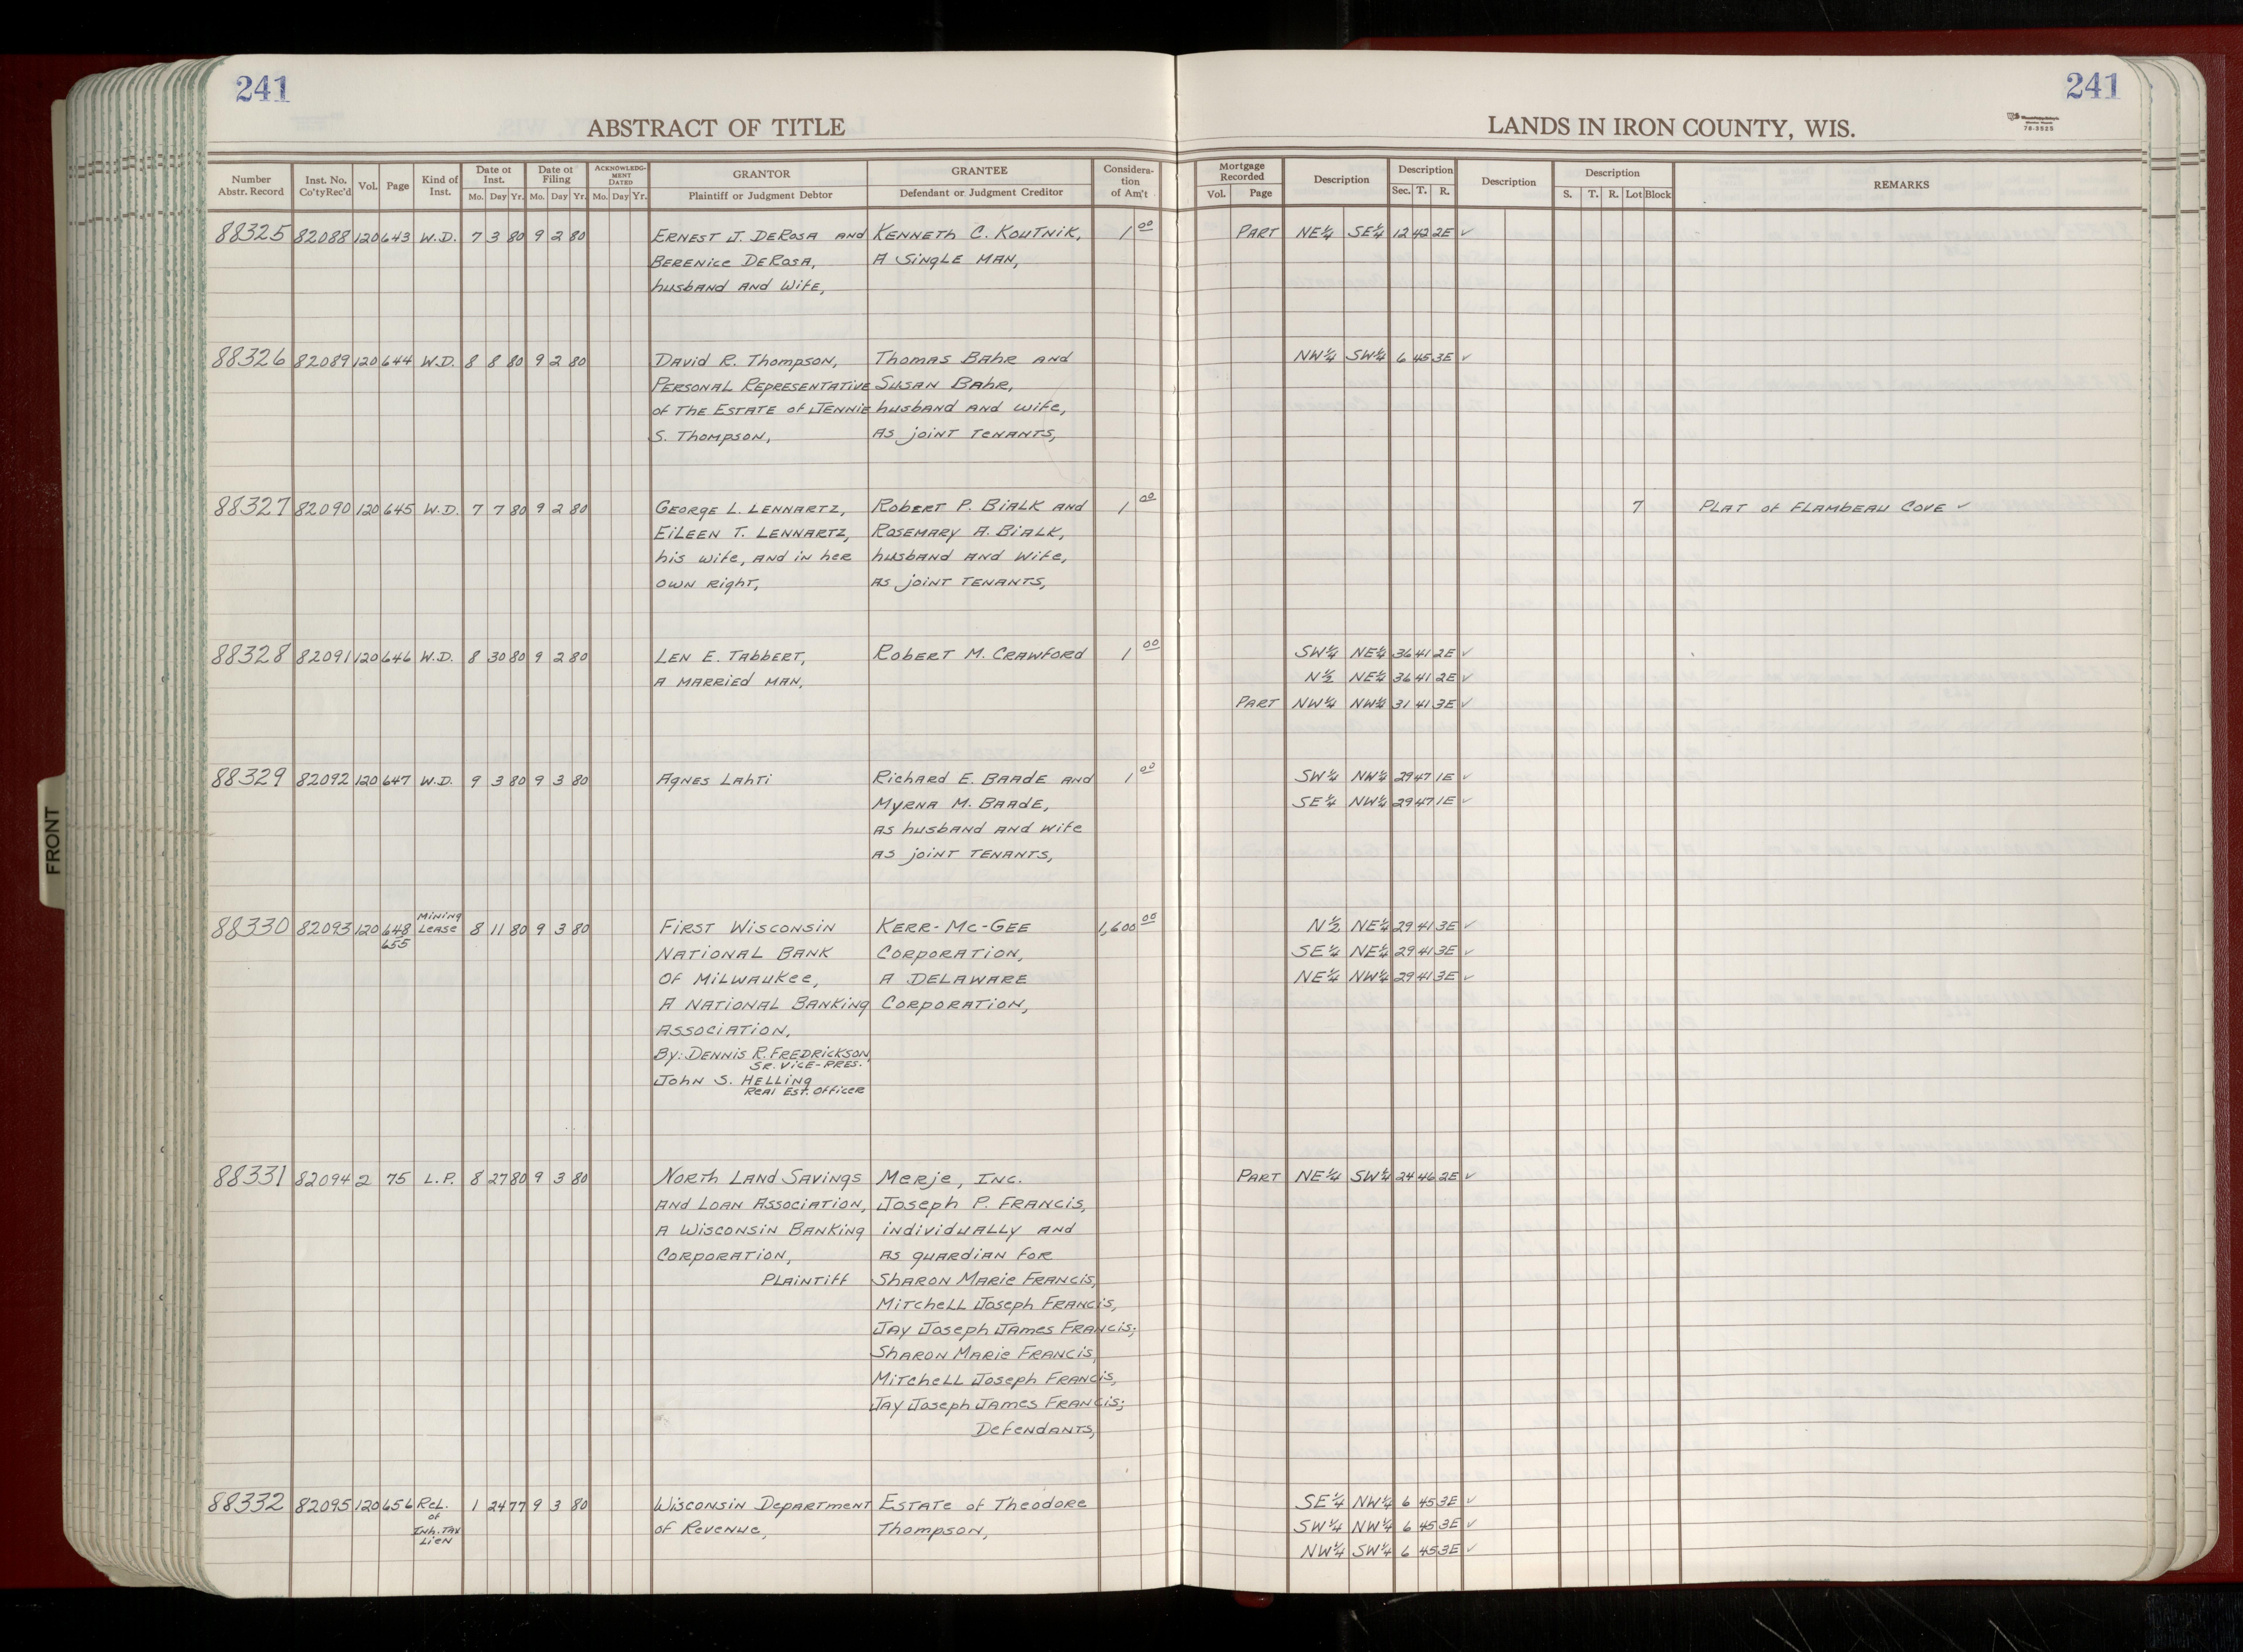 241
ABSTRACT OF TITLE
241
LANDS IN IRON COUNTY, WIS.
78-3525
Number Abstr. Record
Inst. No. Co'ty Rec'd
Vol.
Page
Kind of Inst.
Date of Inst.
Mo. Day Yr.
Date of Filing
Mo. Day Yr.
ACKNOWLEDG-MENT DATED
Mo. Day Yr.
GRANTOR
Plaintiff or Judgment Debtor
GRANTEE
Defendant or Judgment Creditor
Considera-tion of Am't
Mortgage Recorded
Vol. Page
Description
Description
Sec. T. R.
Description
Description
S. T. R. Lot Block
REMARKS
88325 82088 120 643 W.D. 7 3 80 9 2 80 ERNEST J. DEROSA AND KENNETH C. KOUTNIK, 1 00 PART NE¼ SE¼ 12 42 2E ✓
BERENICE DEROSA, A SINGLE MAN,
husband AND Wife,
88326 82089 120 644 W.D. 8 8 80 9 2 80 David R. Thompson, Thomas Bahr AND NW¼ SW¼ 6 45 3E ✓
PERSONAL REPRESENTATIVE SUSAN BAhR,
of THE ESTATE of JENNIE husband AND wife,
S. Thompson, AS joiNT TENANTS,
88327 82090 120 645 W.D. 7 7 80 9 2 80 GEORGE L. LENNARTZ, RobERT P. BiALK AND 1 00 7 PLAT of FLAMBEAU COVE ✓
EiLEEN T. LENNARTZ, ROSEMARY A. BiALK,
his wife, AND in hER husband AND Wife,
OWN Right, AS joiNT TENANTS,
88328 82091 120 646 W.D. 8 30 80 9 2 80 LEN E. TAbbERT, RobERT M. CRAWFORD 1 00 SW¼ NE¼ 36 41 2E ✓
A MARRIED MAN, N½ NE¼ 36 41 2E ✓
PART NW¼ NW¼ 31 41 3E ✓
88329 82092 120 647 W.D. 9 3 80 9 3 80 AgNES LAhTi Richard E. BAADE AND 1 00 SW¼ NW¼ 29 47 1E ✓
MYRNA M. BAADE, SE¼ NW¼ 29 47 1E ✓
AS husband AND wife
AS joiNT TENANTS,
88330 82093 120 648 655 MiNiNg LEASE 8 11 80 9 3 80 FiRST WiSCONSiN KERR-Mc-GEE 1,600 00 N½ NE¼ 29 41 3E ✓
NATIONAL BANK CORPORATION, SE¼ NE¼ 29 41 3E ✓
Of MiLWAUKee, A DELAWARE NE¼ NW¼ 29 41 3E ✓
A NATIONAL BANKiNg CORPORATION,
ASSOCIATION,
By: DENNiS R. FREDRICKSON,
SR. ViCE-PRES.
JohN S. HELLiNg
REAl EST. OfficER
88331 82094 2 75 L.P. 8 27 80 9 3 80 NORTh LAND SAViNgS MERje, INC. PART NE¼ SW¼ 24 46 2E ✓
AND LOAN ASSOCIATION, JOSEph P. FRANCiS,
A WiSCONSiN BANKiNg iNdividUALLY AND
CORPORATION, AS gUARDiAN FOR
PLAiNTiff SHARON MARiE FRANCiS,
MiTchELL JOSEph FRANCiS,
JAY JOSEph JAMES FRANCiS;
SHARON MARiE FRANCiS,
MiTchELL JOSEph FRANCiS,
JAY JOSEph JAMES FRANCiS;
DEfENDANTS,
88332 82095 120 656 REL. of INh. TAX LiEN 1 24 77 9 3 80 WiSCONSiN DEpARTmENT ESTATE of ThEOdORE SE¼ NW¼ 6 45 3E ✓
of REVENUE, ThOmpSON, SW¼ NW¼ 6 45 3E ✓
NW¼ SW¼ 6 45 3E ✓
FRONT